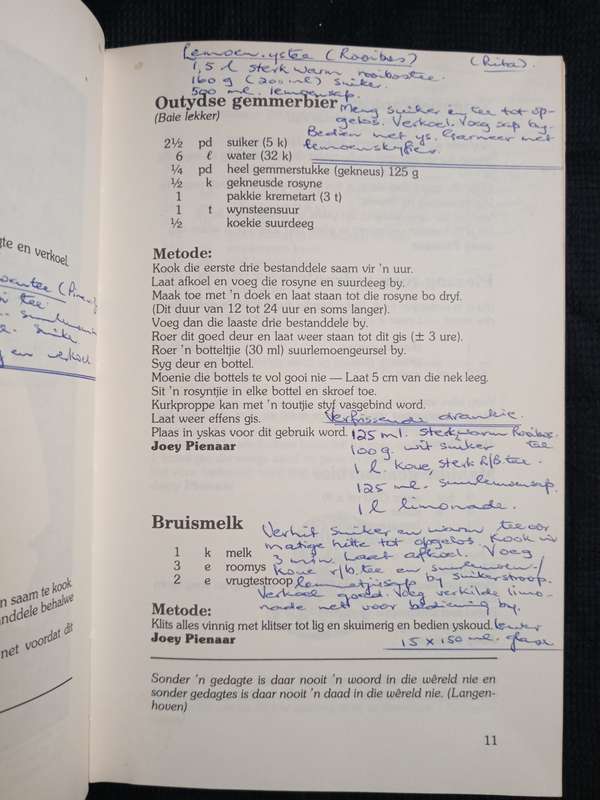 Lemoen-ystee (Rooibos) (Rita).
1,5 l sterk warm rooibostee.
160 g (200 ml) suiker.
500 ml. lemoensap.
Meng suiker en tee tot op-
gelos. Verkoel. Voeg sap by.
Bedien met ys. Garneer met
lemoenskyfies.
Outydse gemmerbier
(Baie lekker)
2½ pd suiker (5 k)
6 ℓ water (32 k)
¼ pd heel gemmerstukke (gekneus) 125 g
½ k gekneusde rosyne
1 pakkie kremetart (3 t)
1 t wynsteensuur
½ koekie suurdeeg
Metode:
Kook die eerste drie bestanddele saam vir 'n uur.
Laat afkoel en voeg die rosyne en suurdeeg by.
Maak toe met 'n doek en laat staan tot die rosyne bo dryf.
(Dit duur van 12 tot 24 uur en soms langer).
Voeg dan die laaste drie bestanddele by.
Roer dit goed deur en laat weer staan tot dit gis (± 3 ure).
Roer 'n botteltjie (30 ml) suurlemoengeursel by.
Syg deur en bottel.
Moenie die bottels te vol gooi nie — Laat 5 cm van die nek leeg.
Sit 'n rosyntjie in elke bottel en skroef toe.
Kurkproppe kan met 'n toutjie styf vasgebind word.
Laat weer effens gis.
Plaas in yskas voor dit gebruik word.
Joey Pienaar
Verfrissende drankie.
125 ml. sterk, warm Rooibos
tee.
100 g. wit suiker
1 l. koue, sterk r/b tee.
125 ml. suurlemoensap.
1 l limonade.
Verhit suiker en warm tee oor
matige hitte tot opgelos. Kook vir
3 min. Laat afkoel. Voeg
koue r/b. tee en suurlemoen-/
lemmetjiesap by suikerstroop.
Verkoel goed. Voeg verkilde limo-
nade net voor bediening by.
Lewer
15 x 150 ml. glase
Bruismelk
1 k melk
3 e roomys
2 e vrugtestroop
Metode:
Klits alles vinnig met klitser tot lig en skuimerig en bedien yskoud.
Joey Pienaar
Sonder 'n gedagte is daar nooit 'n woord in die wêreld nie en
sonder gedagtes is daar nooit 'n daad in die wêreld nie. (Langen-
hoven)
11
gte en verkoel.
tee
suurlemoen
en verkoel
n saam te kook.
anddele behalwe
net voordat dit